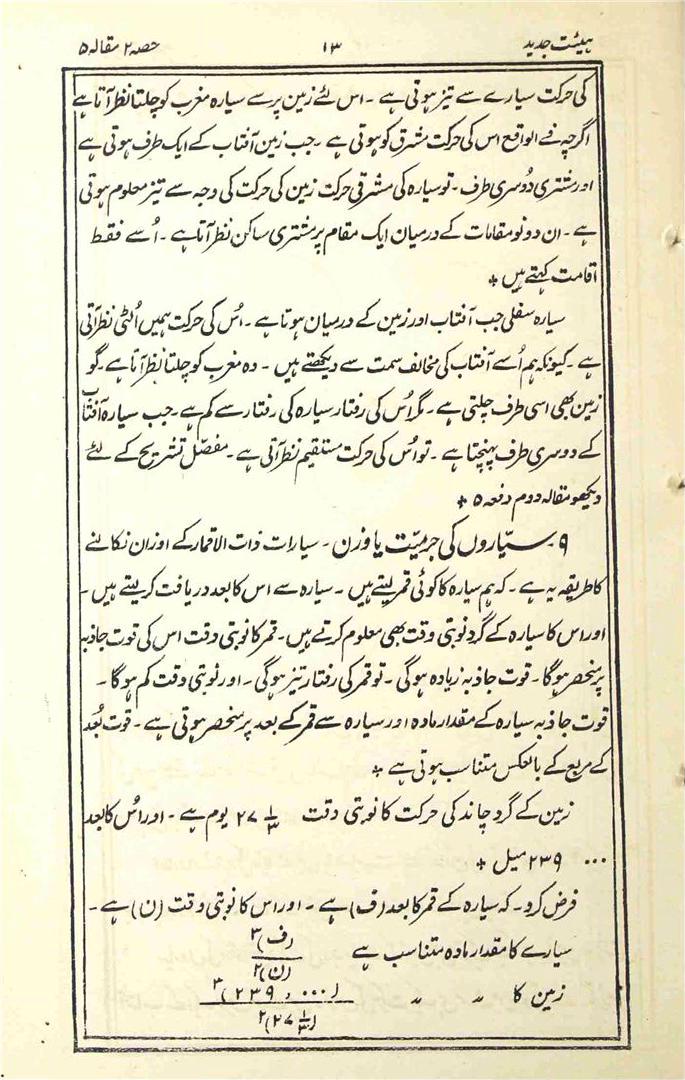 ہیئت جدید ۱۳ حصہ ۲ مقالہ ۵
کی حرکت سیارے سے تیز ہوتی ہے ۔ اس لئے زمین پر سے سیارہ مغرب کو چلتا نظر آتا ہے
اگرچہ فے الواقع اس کی حرکت مشرق کو ہوتی ہے ۔ جب زمین آفتاب کے ایک طرف ہوتی ہے
اور مشتری دُوسری طرف ۔ تو سیارہ کی مشرقی حرکت زمین کی حرکت کی وجہ سے تیز معلوم ہوتی
ہے ۔ ان دونو مقامات کے درمیان ایک مقام پر مشتری ساکن نظر آتا ہے ۔ اُسے فقط
اقامت کہتے ہیں *
سیارہ سفلی جب آفتاب اور زمین کے درمیان ہوتا ہے ۔ اُس کی حرکت ہمیں اُلٹی نظر آتی
ہے ۔ کیونکہ ہم اُسے آفتاب کی مخالف سمت سے دیکھتے ہیں ۔ وہ مغرب کو چلتا نظر آتا ہے ۔ گو
زمین بھی اسی طرف چلتی ہے ۔ مگر اُس کی رفتار سیارہ کی رفتار سے کم ہے ۔ جب سیارہ آفتاب
کے دوسری طرف پہنچتا ہے ۔ تو اُس کی حرکت مستقیم نظر آتی ہے ۔ مفصّل تشریح کے لئے
دیکھو مقالہ دوم دفعہ ۵ *
۹ ۔ سیّاروں کی جرمیّت یا وزن ۔ سیارات ذات الاقمار کے اوزان نکالنے
کا طریقہ یہ ہے ۔ کہ ہم سیارہ کا کوئی قمر لیتے ہیں ۔ سیارہ سے اس کا بعد دریافت کر لیتے ہیں ۔
اور اس کا سیارہ کے گرد نوبتی وقت بھی معلوم کرتے ہیں ۔ قمر کا نوبتی وقت اس کی قوت جاذبہ
پر منحصر ہوگا ۔ قوت جاذبہ زیادہ ہوگی ۔ تو قمر کی رفتار تیز ہوگی ۔ اور نوبتی وقت کم ہوگا ۔
قوت جاذبہ سیارہ کے مقدار مادہ اور سیارہ سے قمر کے بعد پر منحصر ہوتی ہے ۔ قوت بُعد
کے مربع کے بالعکس متناسب ہوتی ہے *
زمین کے گرد چاند کی حرکت کا نوبتی وقت ۲۷ ۱/۳ یوم ہے ۔ اور اُس کا بعد
۲۳۹۰۰۰ میل *
فرض کرو ۔ کہ سیارہ کے قمر کا بعد (ف) ہے ۔ اور اس کا نوبتی وقت (ن) ہے ۔
سیارے کا مقدار مادہ متناسب ہے (ف)۳ / (ن)۲
زمین کا 〃 〃 (۲۳۹۰۰۰)۳ / (۲۷ ۱/۳)۲